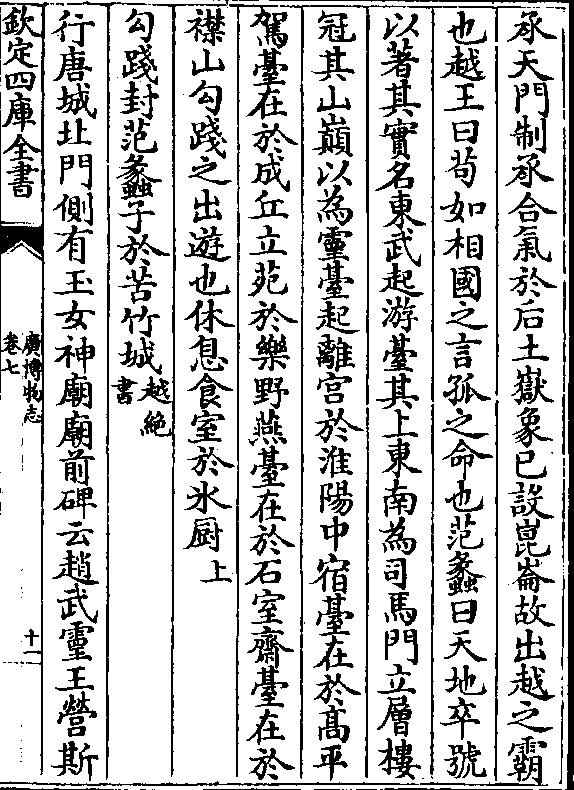 承天門制承合氣於后土嶽象已設崑崙故出越之霸
也越王曰苟如相國之言孤之命也范蠡曰天地卒號
以著其實名東武起游臺其上東南為司馬門立層樓
冠其山巔以為靈臺起離宮於淮陽中宿臺在於高平
駕臺在於成丘立苑於樂野燕臺在於石室齋臺在於
襟山勾踐之出遊也休息食室於氷厨上
勾踐封范蠡子於苦竹城越絶
書
行唐城北門側有玉女神廟廟前碑云趙武靈王營斯
欽定四庫全書
廣博物志
卷七
十一